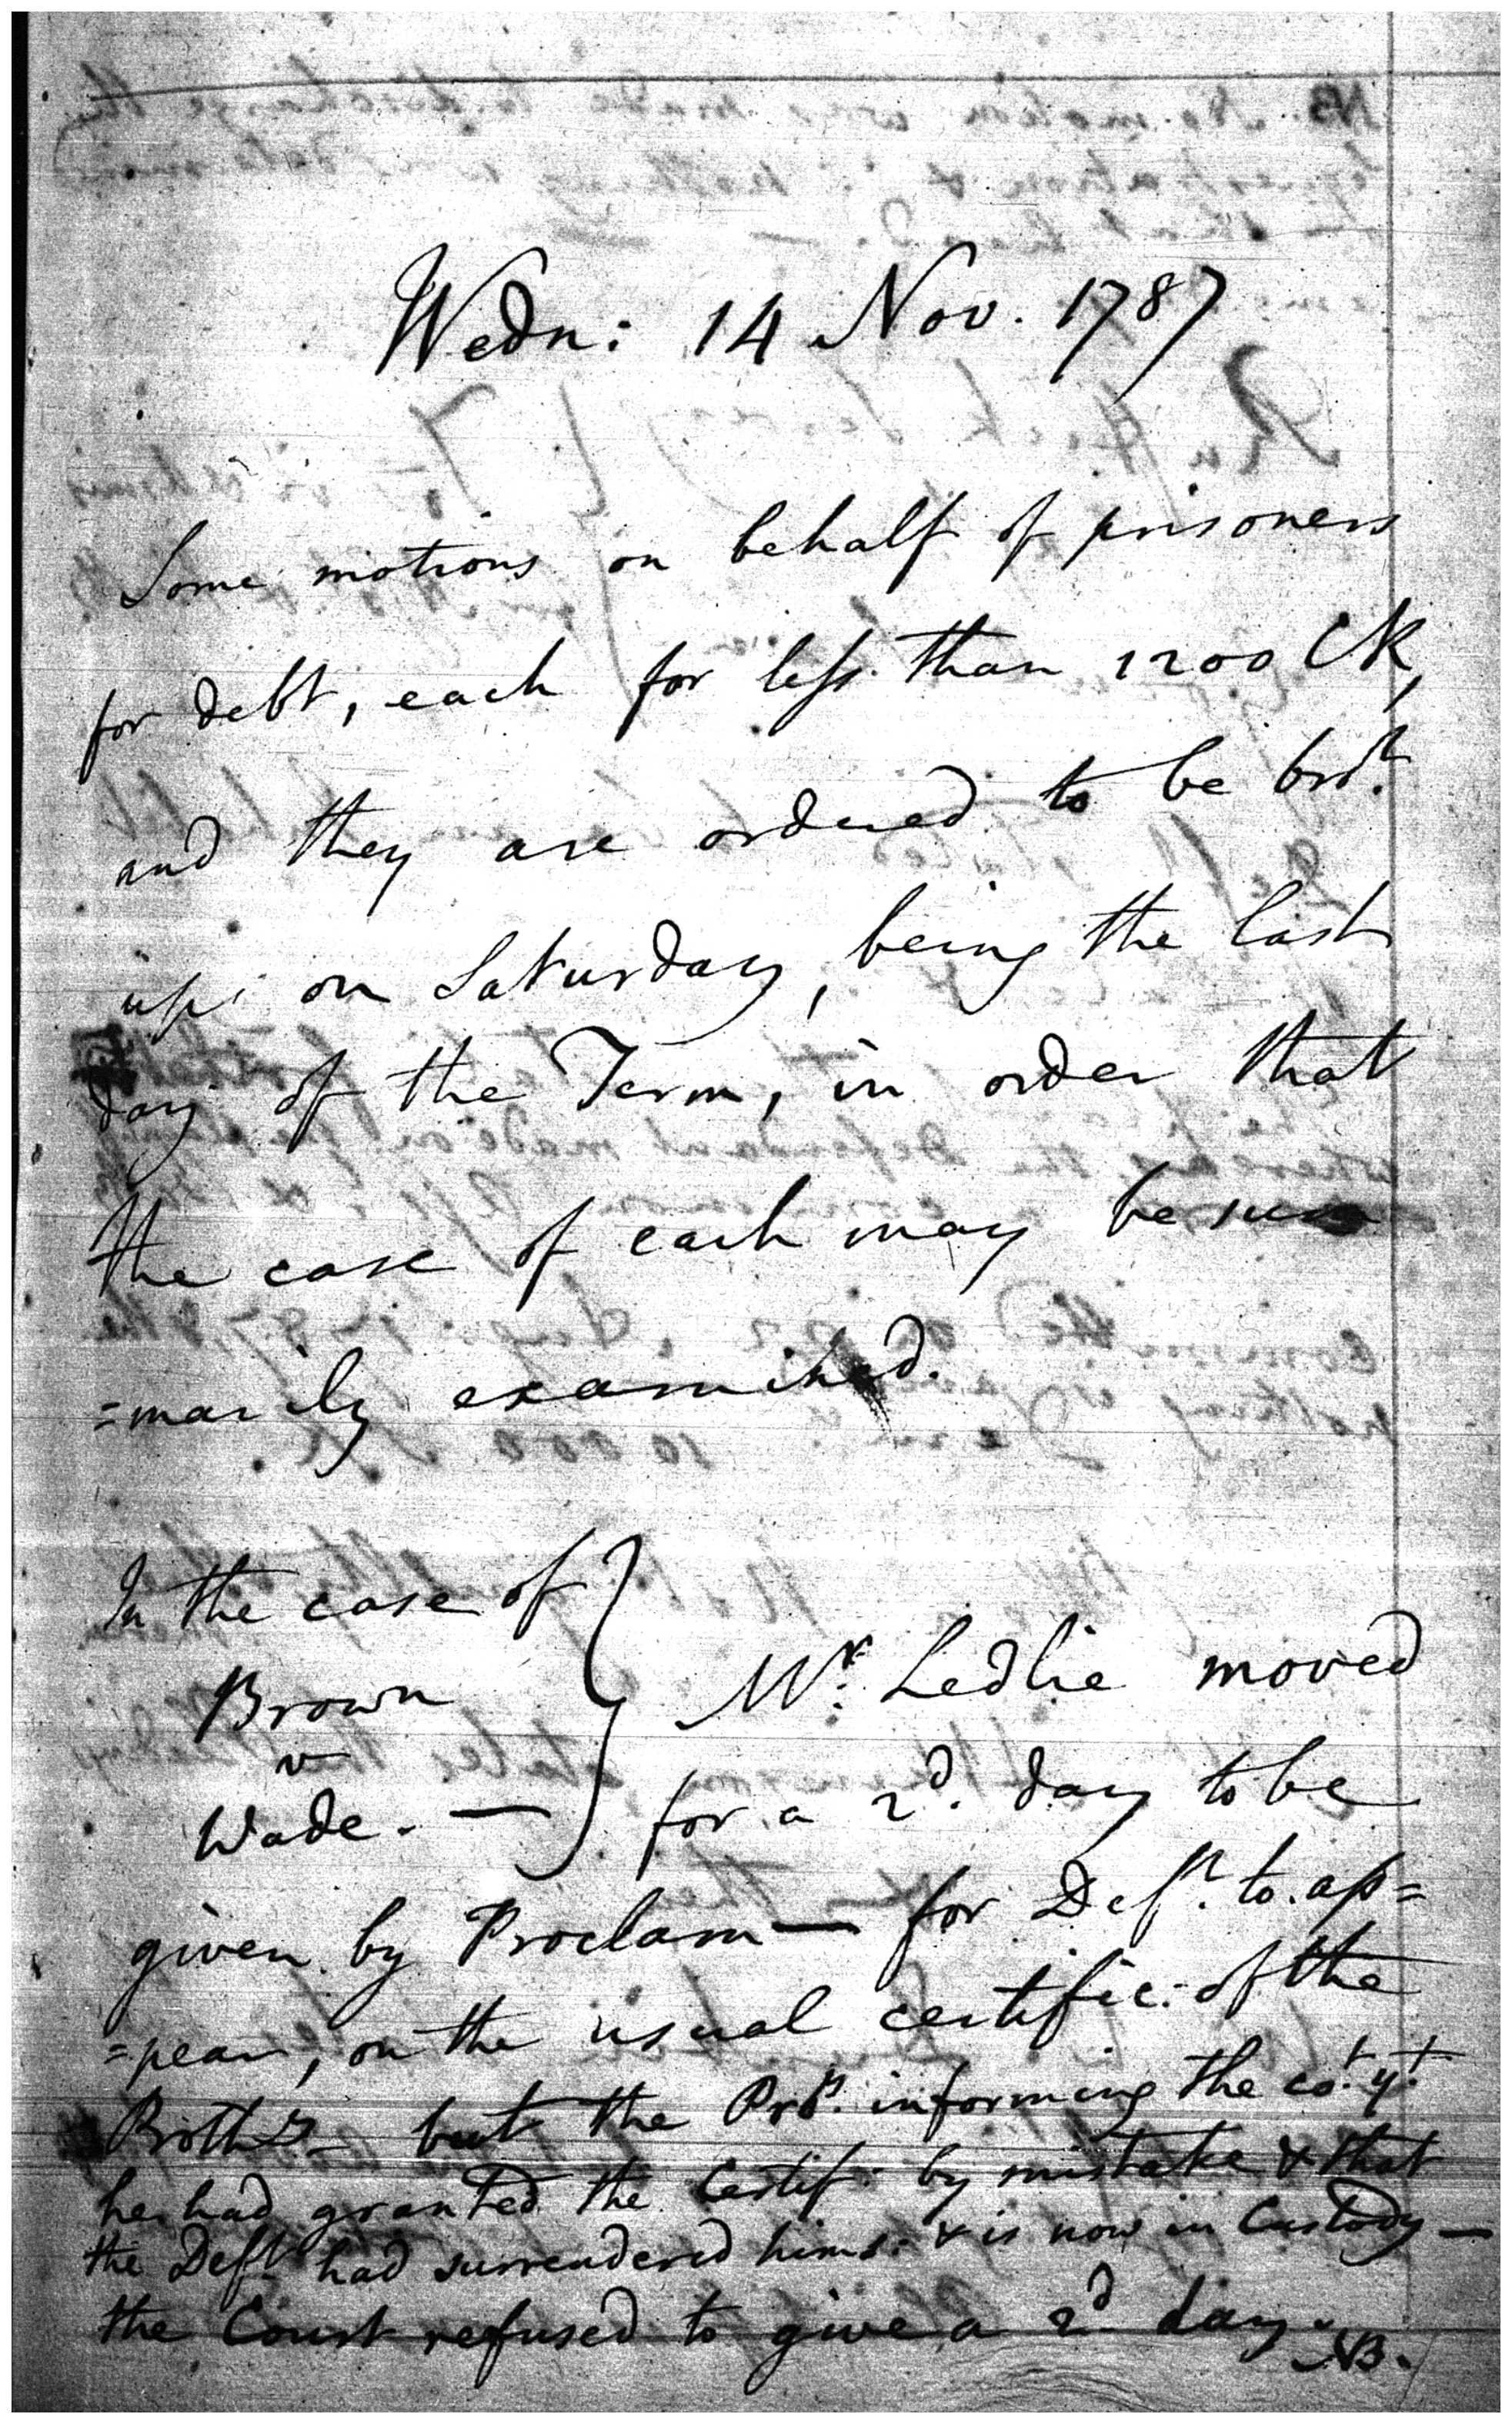 Wedn: 14 Nov. 1787
Some motions on behalf of prisoners
for debt, each for less than 1200 CR,
and they are ordered to be bro.t
up on Saturday, being the last
day of the Term, in order that
the case of each may be sum
=marily examined.
In the case of
Brown
v
Wade. —
Mr. Ledlie moved
for a 2d. day to be
given by Proclam— for Deft. to ap=
=pear, on the usual certific: of the
but the informing the cot. yt.
he had granted the Certif: by mistake & that
the Deft had surrendered hims: & is now in Custody —
the Court refused to give a 2d day.
NB.